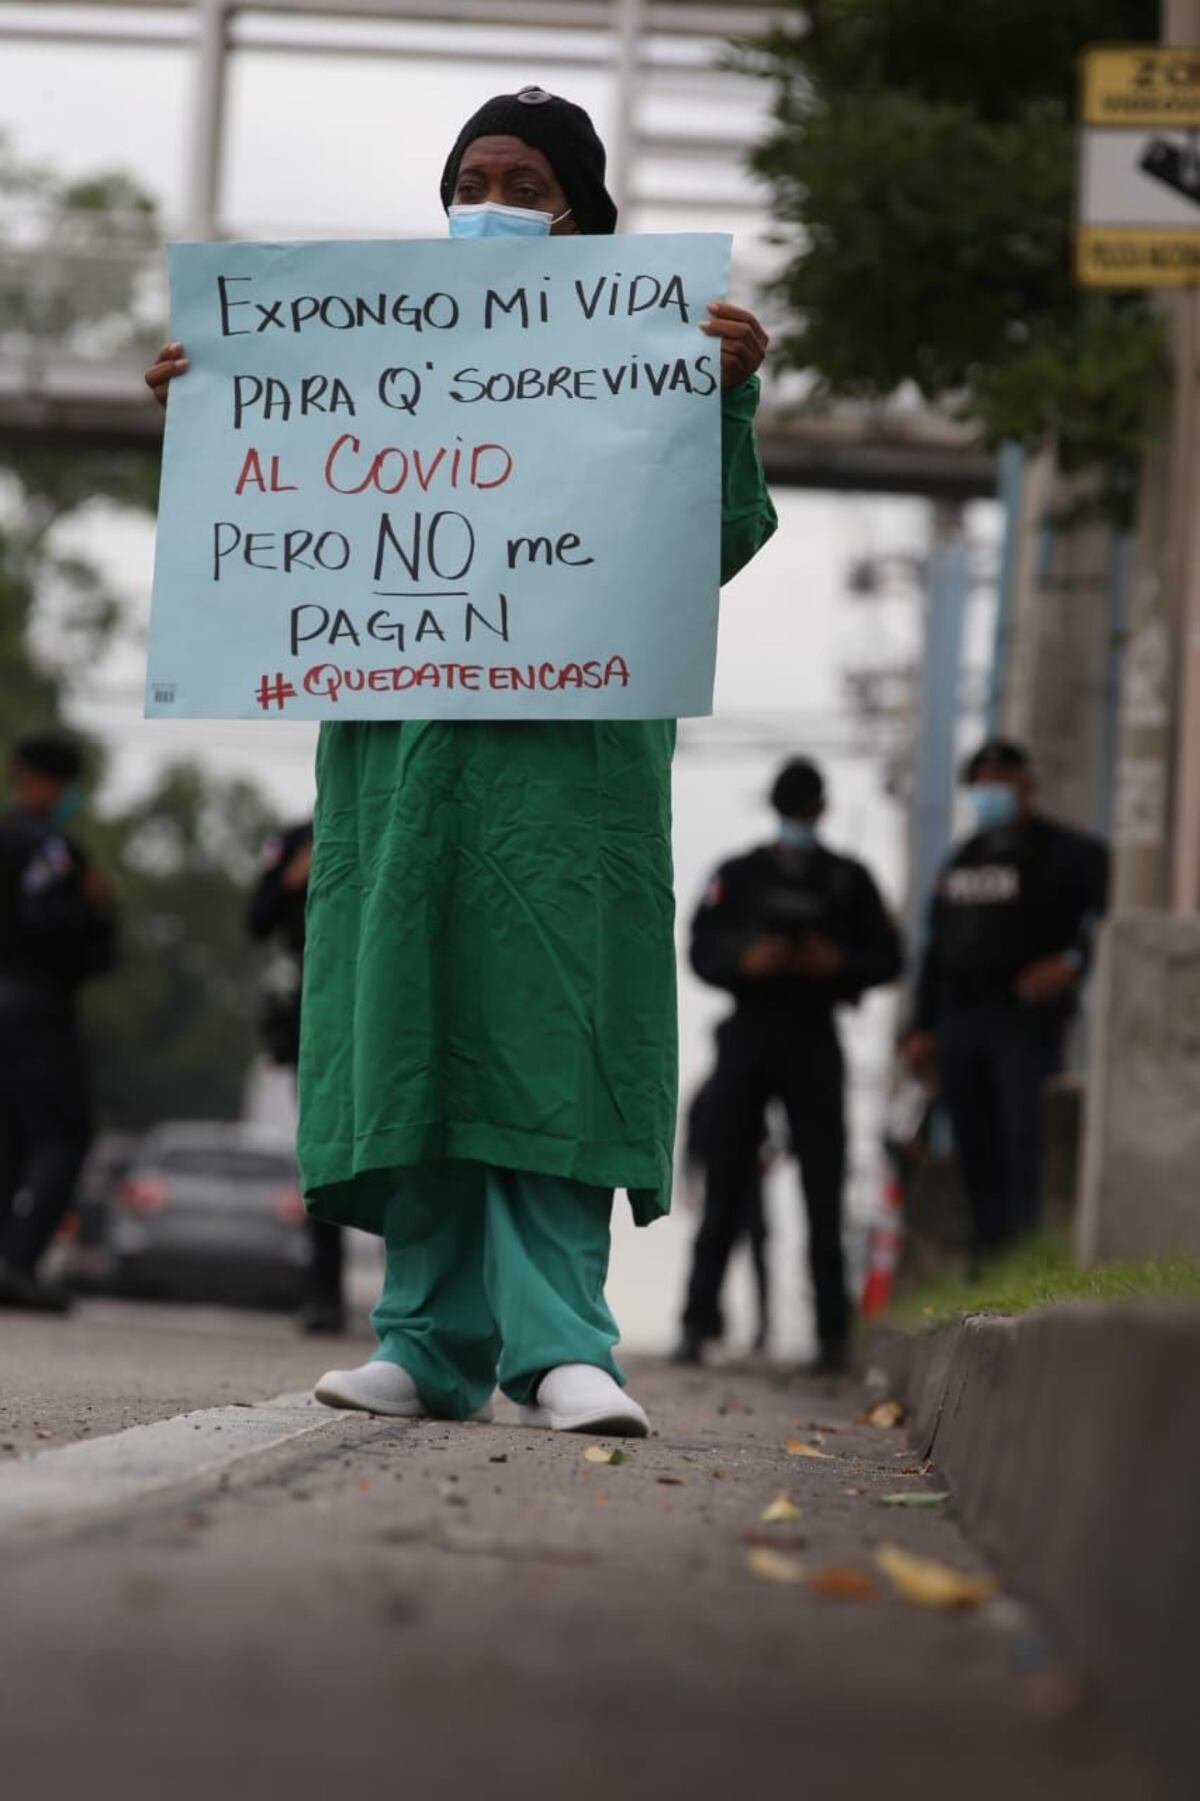 EXPONGO Mi ViDA
PARA Q' SOBREViVAS
AL COViD
PERO NO me
PAGAN
#QUEDATEENCASA